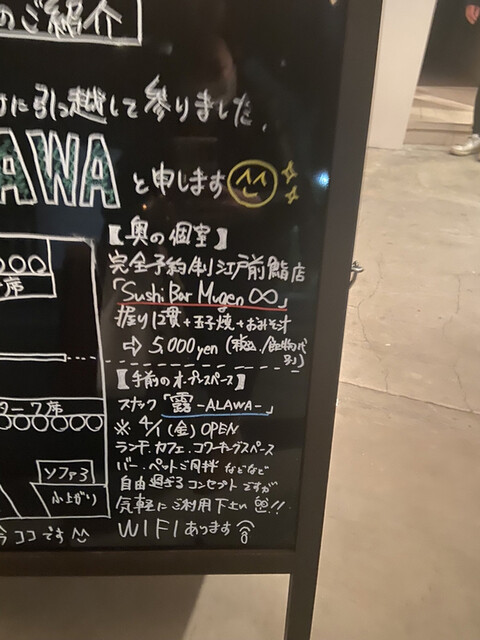 のご紹介
に引っ越して参りました。
AWA と申します
【奥の個室】
完全予約制江戸前鮨店
「Sushi Bar Mugen ∞」
握り12貫+玉子焼+おみそ汁
⇨ 5,000yen (税込/飲物代別)
席
【手前のオープンスペース】
スナック「露 -ALAWA-」
※ 4/1(金) OPEN
ターク席
ランチ.カフェ.コワーキングスペース
バー.ペットご同伴 などなど
ソファ3
自由過ぎるコンセプトですが
小上がり
気軽にご利用下さい!!
今ココです
WIFIあります